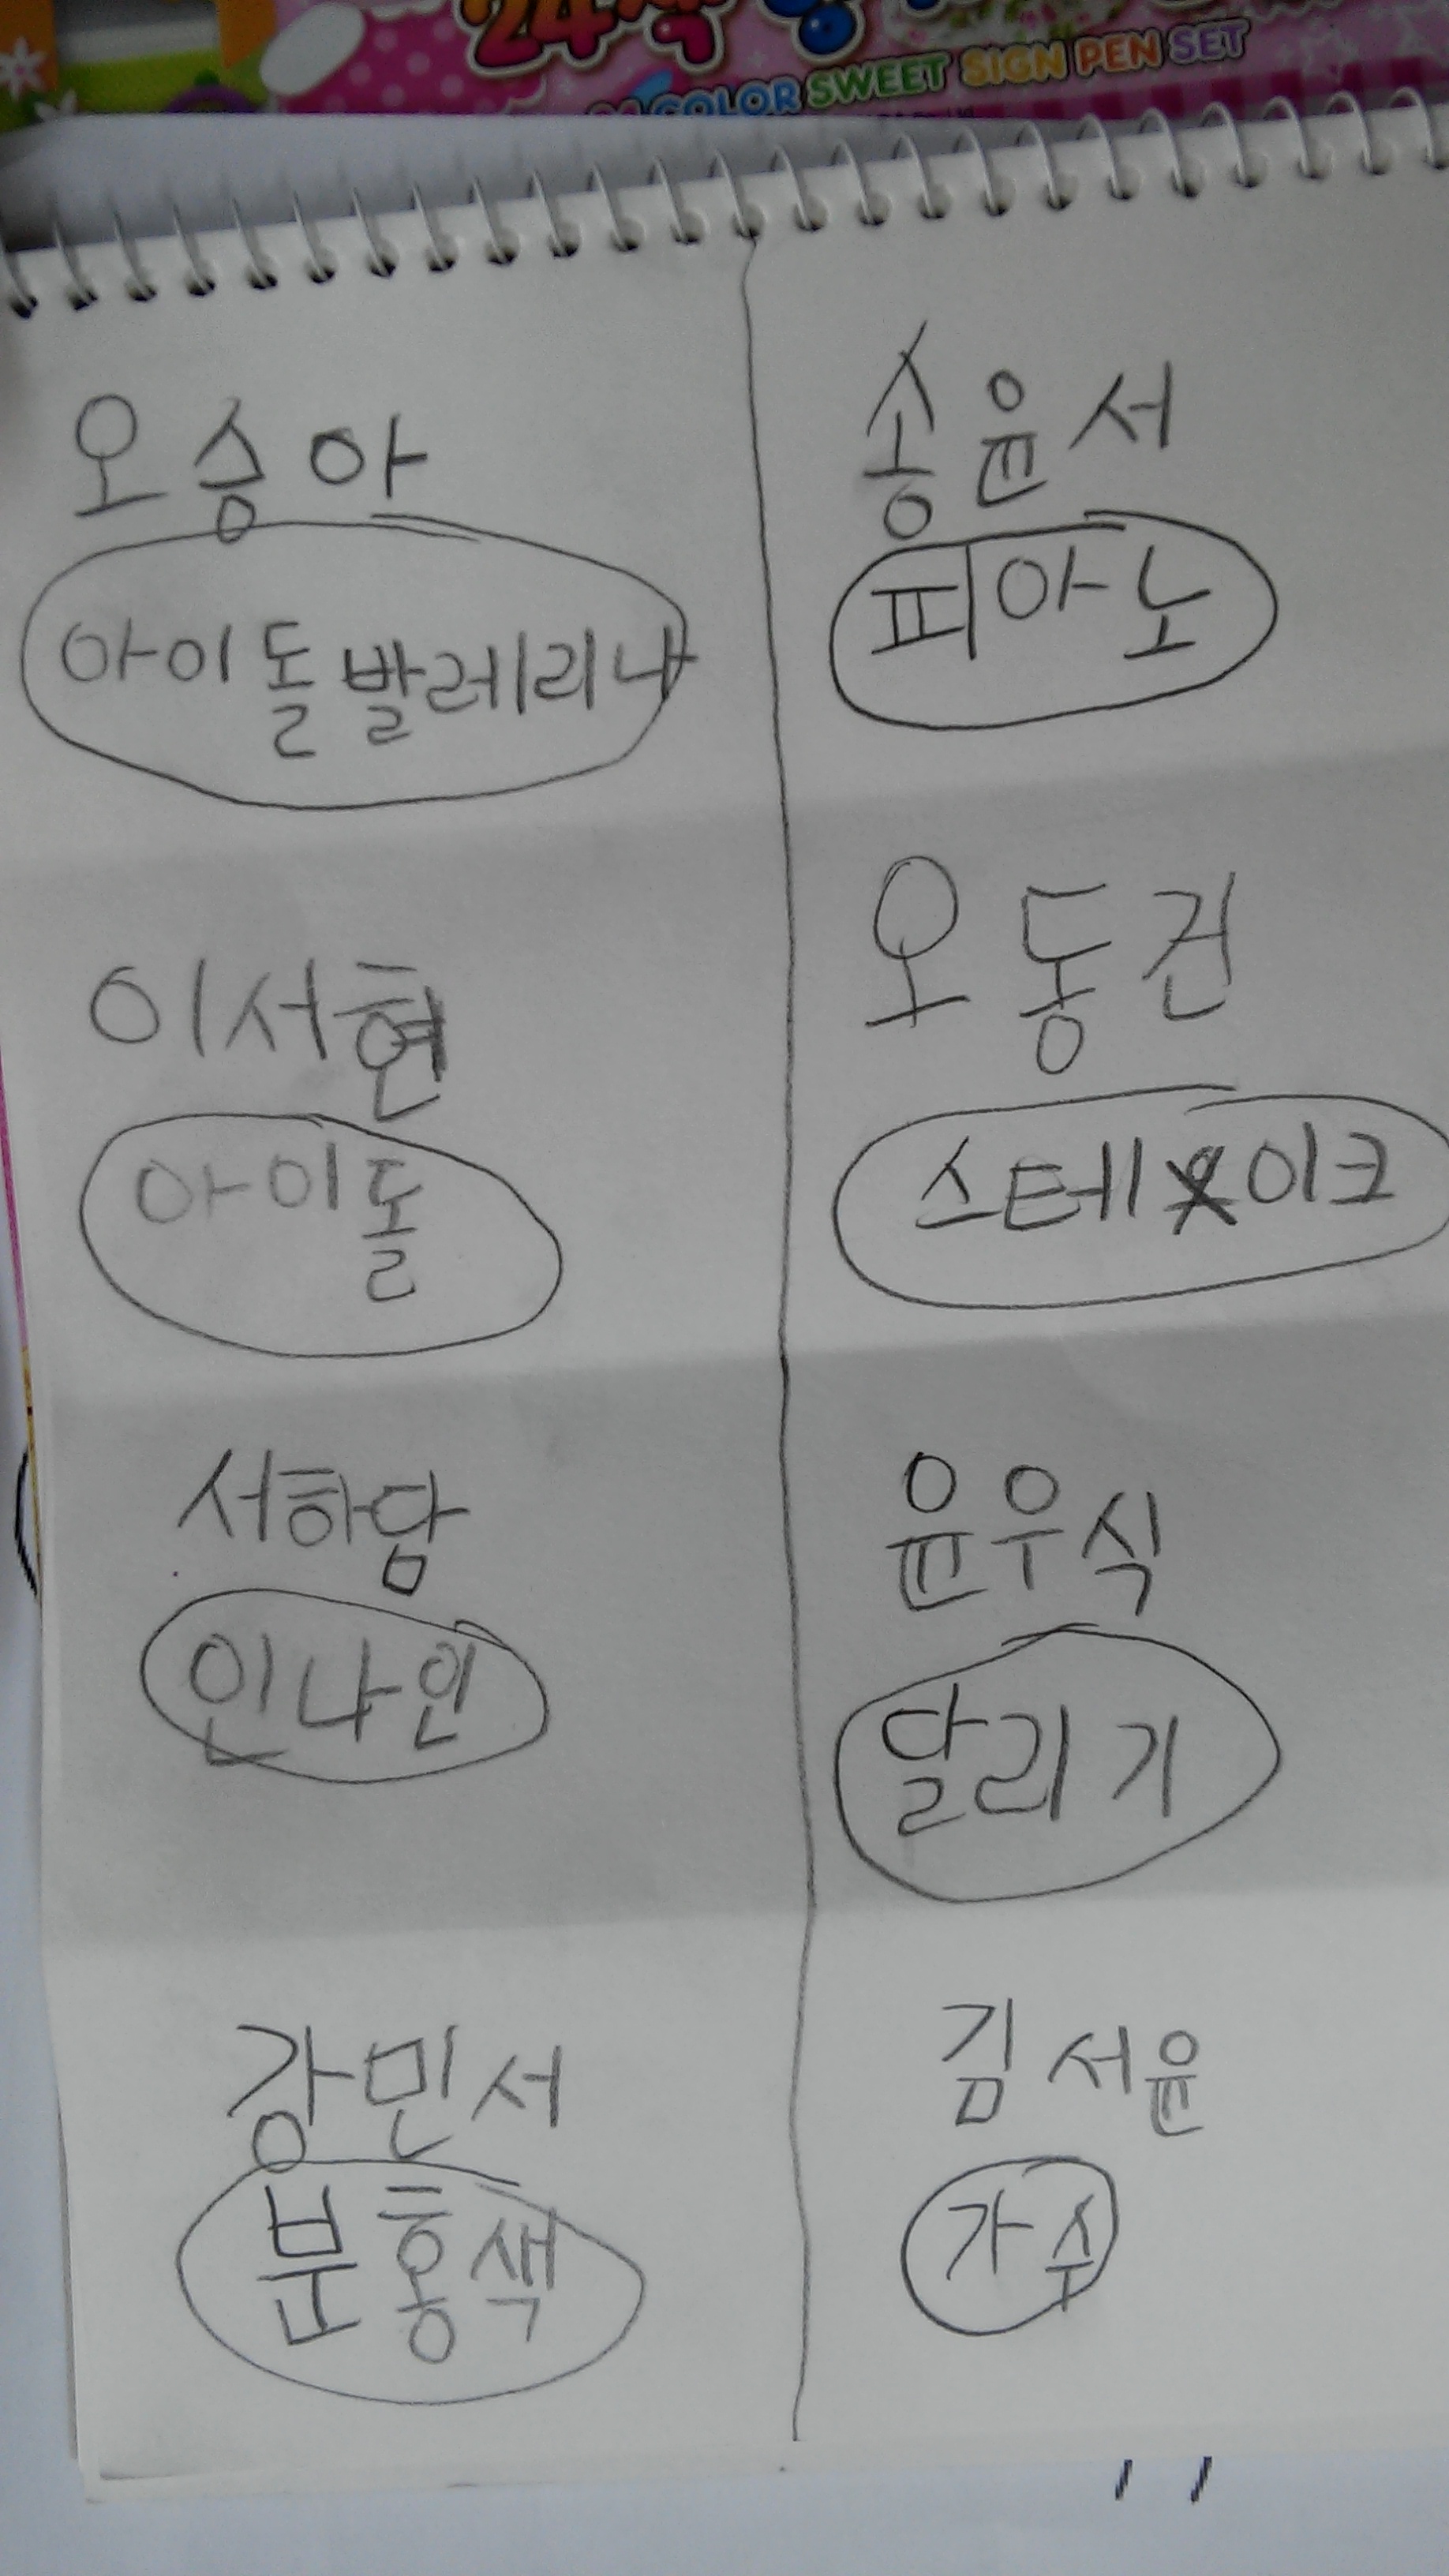 COLOR SWEET SIGN PEN SET
오승아
아이돌발레리나
이서현
아이돌
서하담
인나인
강민서
분홍색
송윤서
피아노
오동건
스테이크
윤우식
달리기
김서윤
가수